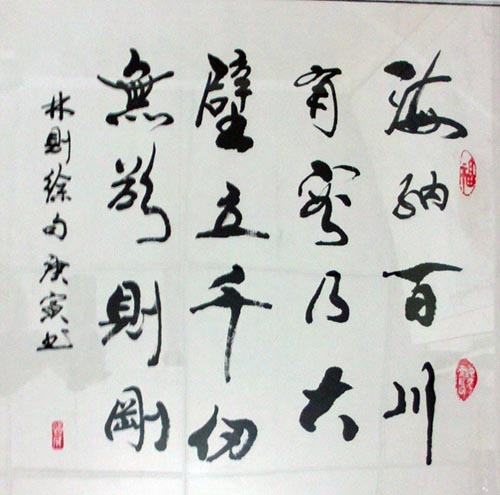 海納百川
有容乃大
壁立千仞
無欲則剛
林則徐句庚寅书